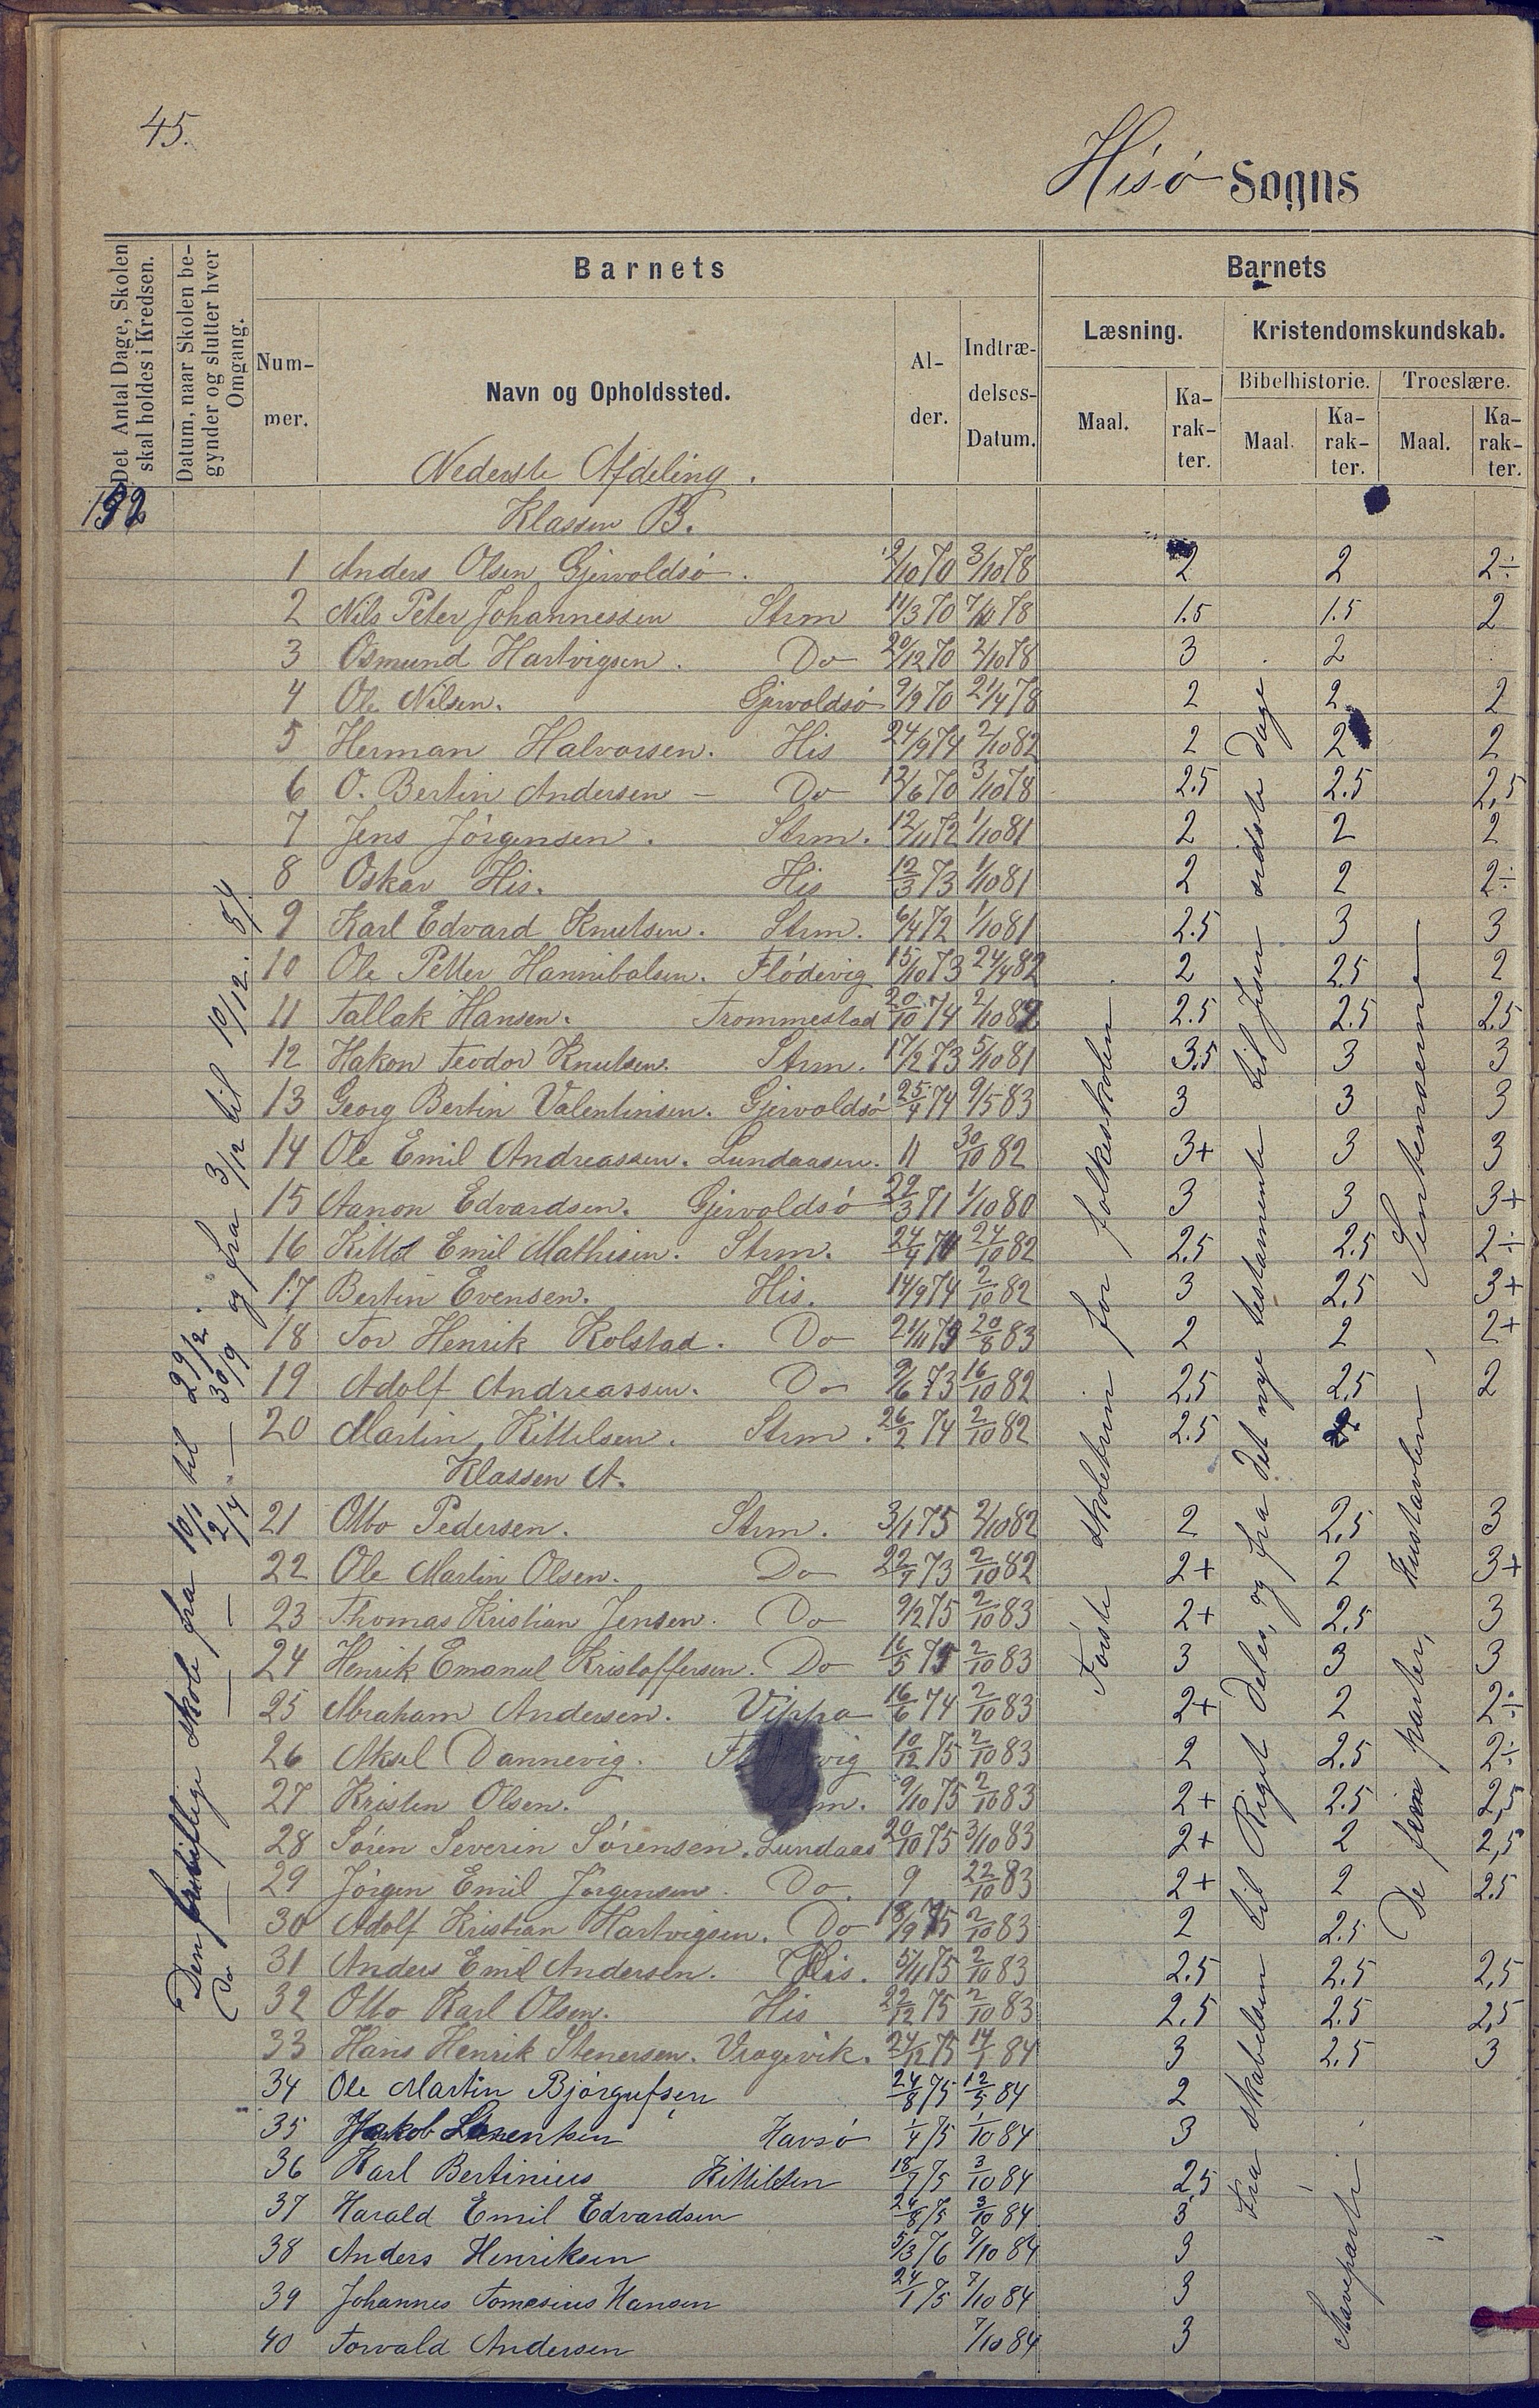 45.
Hisø Sogns
Det Antal Dage, Skolen skal holdes i Kredsen.
Datum, naar Skolen begynder og slutter hver Omgang.
Barnets
Barnets
Nummer.
Navn og Opholdssted.
Alder.
Indtrædelses-Datum.
Læsning.
Kristendomskundskab.
Bibelhistorie.
Troeslære.
Maal.
Karakter.
Maal.
Karakter.
Maal.
Karakter.
Nederste Afdeling.
152
Klassen B.
1 Anders Olsen Gjervoldsø. 2/10 70 3/10 78 2 2 2÷
2 Nils Peter Johannessen Strm 11/3 70 7/10 78 1.5 1.5 2
3 Osmund Hartvigsen. Do 20/12 70 2/10 78 3 2
4 Ole Nilsen. Gjervoldsø 9/9 70 21/4 78 2 2 2
5 Herman Halvorsen. His 24/9 74 2/10 82 2 2 2
6 O. Bertin Andersen - Do 12/6 70 3/10 78 2.5 2.5 2,5
7 Jens Jörgensen. Strm. 12/11 72 1/10 81 2 2 2
8 Oskar His. His 12/3 73 1/10 81 2 2 2÷
9 Karl Edvard Knutsen. Strm. 6/4 72 1/10 81 2.5 3 3
10 Ole Petter Hannibalsen. Flödevig 15/10 73 24/4 82 2 2.5 2
11 Tallak Hansen. Trommestad 20/10 74 2/10 82 2.5 2.5 2.5
12 Hakon Teodor Knutsen. Strm. 17/2 73 5/10 81 3.5 3 3
13 Georg Bertin Valentinsen. Gjervoldsö 25/4 74 9/5 83 3 3 3
14 Ole Emil Andreassen. Lundaasen. 11 30/10 82 3+ 3 3
15 Aanon Edvardsen. Gjervoldsö 29/3 71 1/10 80 3 3 3+
16 Kittel Emil Mathisen. Strm. 24/10 82 2.5 2.5 2÷
17 Bertin Evensen. His. 14/9 74 2/10 82 3 2.5 3+
18 Tor Henrik Kolstad. Do 20/8 83 2 2 2+
19 Adolf Andreassen. Do 9/6 73 16/10 82 2.5 2.5 2
20 Martin Kittelsen. Strm. 26/2 74 2/10 82 2.5 2
Klassen A.
21 Otto Pedersen. Strm. 3/1 75 2/10 82 2 2,5 3
22 Ole Martin Olsen. Do 22/9 73 2/10 82 2+ 2 3+
23 Thomas Kristian Jensen. Do 9/2 75 2/10 83 2+ 2.5 3
24 Henrik Emanuel Kristoffersen. Do 16/5 75 2/10 83 3 3 3
25 Abraham Andersen. Vippa 16/6 74 2/10 83 2+ 2 2÷
26 Aksel Dannevig. 10/12 75 2/10 83 2 2.5 2÷
27 Kristen Olsen. 9/10 75 2/10 83 2+ 2.5 2,5
28 Sören Severin Sörensen. Lundaas 20/10 75 3/10 83 2+ 2 2,5
29 Jörgen Emil Jörgensen. Do. 9 22/10 83 2+ 2 2.5
30 Adolf Kristian Hartvigsen. Do 18/9 75 2/10 83 2 2.5
31 Anders Emil Andersen. His. 5/11 75 2/10 83 2.5 2.5 2,5
32 Otto Karl Olsen. His 22/12 75 2/10 83 2.5 2.5 2,5
33 Hans Henrik Stenersen. Vragevik. 24/12 75 14/1 84 3 2.5 3
34 Ole Martin Björgufsen 24/8 75 12/5 84 2
35 Jakob Havsö 1/4 75 1/10 84 3
36 Karl Bertinius Kittilsen 18/9 75 3/10 84 2,5
37 Harald Emil Edvardsen 24/8 75 3/10 84 3
38 Anders Henriksen 5/3 76 7/10 84 3
39 Johannes Tomasius Hansen 24/1 75 7/10 84 3
40 Torvald Andersen 7/10 84 3
Den skole fra 10/1 til 29/2.
Do — — 2/4 — 30/9 og fra 3/12 til 10/12. 5/
Første skoletrin for folkeskolen
Fra skabelsen til Riget deles, og fra det nye testamente til Jesu sidste dage.
De fem parter,